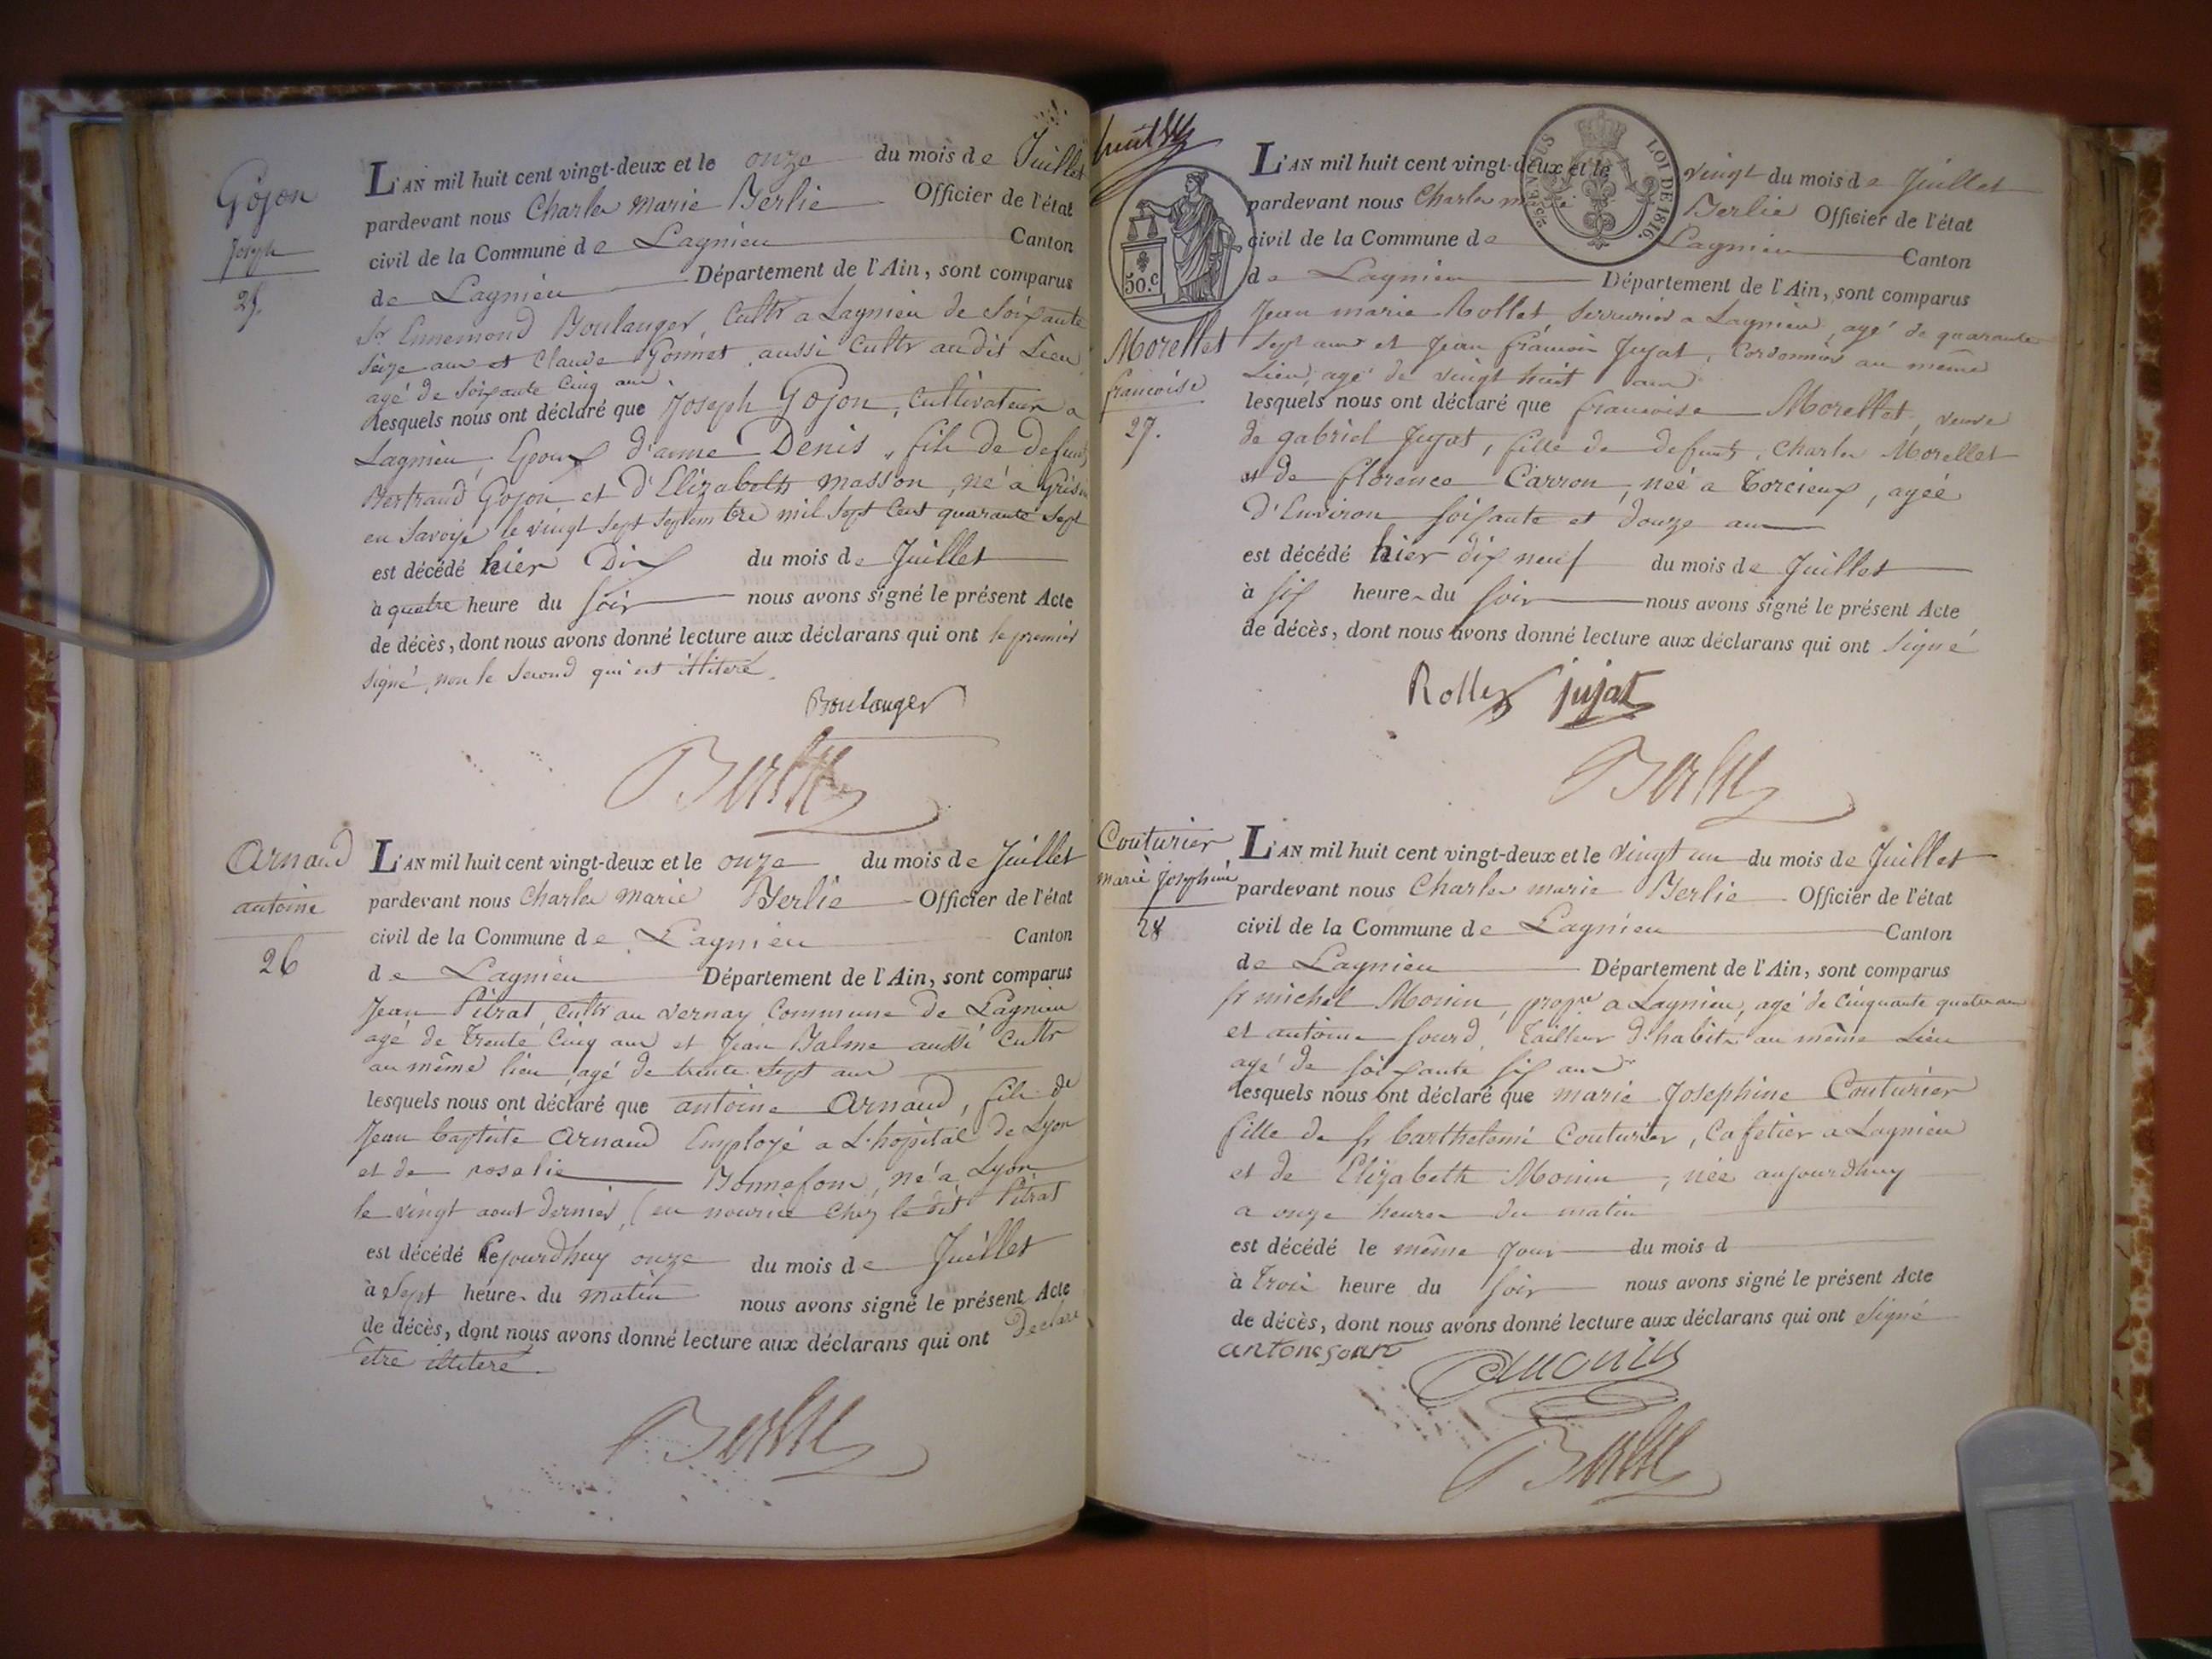 Gojon
Joseph
25.
L'AN mil huit cent vingt-deux et le onze du mois de Juillet
pardevant nous Charles marie Berlie Officier de l'état
civil de la Commune de Lagnieu Canton
de Lagnieu Département de l'Ain, sont comparus
Sr Ennemond Boulanger, Cultr a Lagnieu de Soixante
Seize ans et Claude Gonnet aussi Cultr audit Lieu
agé de Soixante Cinq ans
lesquels nous ont déclaré que Joseph Gojon, Cultivateur a
Lagnieu, Epoux d'anne Denis, fils de defunt
Bertrand Gojon et d'Elizabeth masson, né a Grésin
en Savoye le vingt sept septembre mil sept cent quarante sept
est décédé hier Dix du mois de Juillet
à quatre heure du soir nous avons signé le présent Acte
de décès, dont nous avons donné lecture aux déclarans qui ont le premier
signé, non le second qui est illiteré.
Boulanger
Berlie
Arnaud
antoine
26
L'AN mil huit cent vingt-deux et le onze du mois de Juillet
pardevant nous Charles marie Berlie Officier de l'état
civil de la Commune de Lagnieu Canton
de Lagnieu Département de l'Ain, sont comparus
Jean Pitrat, Cultr au vernay Commune de Lagnieu
agé de trente Cinq ans et Jean Balme aussi Cultr
au même lieu, agé de trente sept ans
lesquels nous ont déclaré que antoine Arnaud, fils de
Jean baptiste Arnaud Employé a L'hôpital de Lyon
et de rosalie Bonnefons, né a Lyon
le vingt aout dernier, (en nourice chez le dit Pitrat
est décédé cejourdhuy onze du mois de Juillet
à Sept heures du matin nous avons signé le présent Acte
de décès, dont nous avons donné lecture aux déclarans qui ont Declaré
etre illiteré.
Berlie
huit
50.c
LOI DE 1816.
Morellet
francoise
27.
L'AN mil huit cent vingt-deux et le vingt du mois de Juillet
pardevant nous Charles marie Berlie Officier de l'état
civil de la Commune de Lagnieu Canton
de Lagnieu Département de l'Ain, sont comparus
Jean marie Rollet Serrurier a Lagnieu, agé de quarante
Sept ans et Jean francois Jujat, Cordonnier au même
Lieu, agé de vingt huit ans
lesquels nous ont déclaré que francoise Morellet, veuve
de gabriel Jujat, fille de defunts Charles Morellet
et de florence Carron, née a Torcieux, agée
d'Environ soixante et douze ans
est décédé hier dix neuf du mois de Juillet
à six heures du soir nous avons signé le présent Acte
de décès, dont nous avons donné lecture aux déclarans qui ont signé
Rollet jujat
Berlie
Couturier
marie Josephine
28
L'AN mil huit cent vingt-deux et le vingt un du mois de Juillet
pardevant nous Charles marie Berlie Officier de l'état
civil de la Commune de Lagnieu Canton
de Lagnieu Département de l'Ain, sont comparus
sr michel Monin, propre a Lagnieu, agé de Cinquante quatre ans
et antoine sourd, Tailleur d'habits au même Lieu
agé de soixante six ans
lesquels nous ont déclaré que marie Josephine Couturier
fille de sr barthelemi Couturier, Cafetier a Lagnieu
et de Elizabeth Monin, née aujourdhuy
a onze heures du matin
est décédé le même Jour du mois d
à trois heure du soir nous avons signé le présent Acte
de décès, dont nous avons donné lecture aux déclarans qui ont signé
antone sourd
Berlie